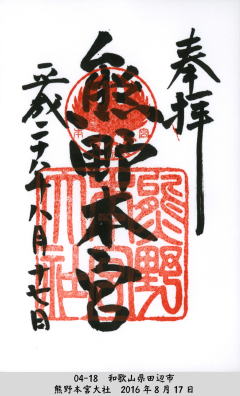 奉拝
熊野本宮
平成二十八年八月十七日
熊野
本宮
大社
04-18　和歌山県田辺市
熊野本宮大社　2016年8月17日